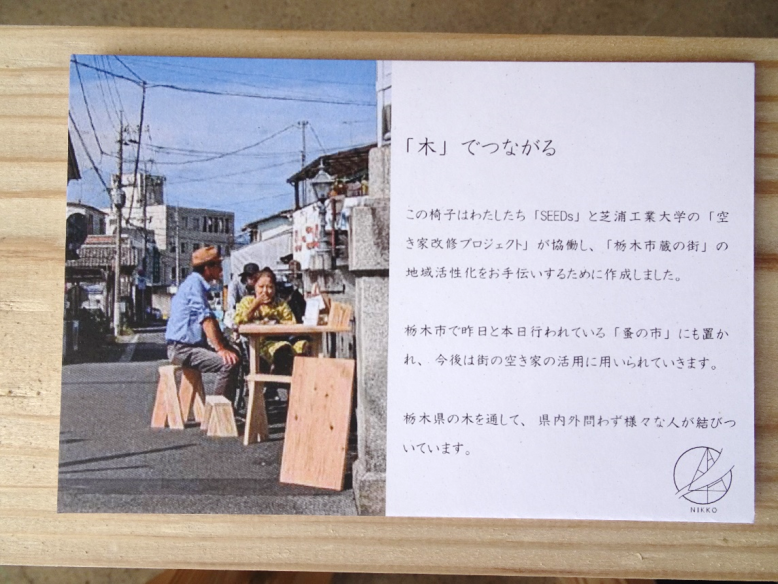 「木」でつながる
この椅子はわたしたち「SEEDs」と芝浦工業大学の「空
き家改修プロジェクト」が協働し、「栃木市蔵の街」の
地域活性化をお手伝いするために作成しました。
栃木市で昨日と本日行われている「蚤の市」にも置か
れ、今後は街の空き家の活用に用いられていきます。
栃木県の木を通して、県内外問わず様々な人が結びつ
いています。
NIKKO